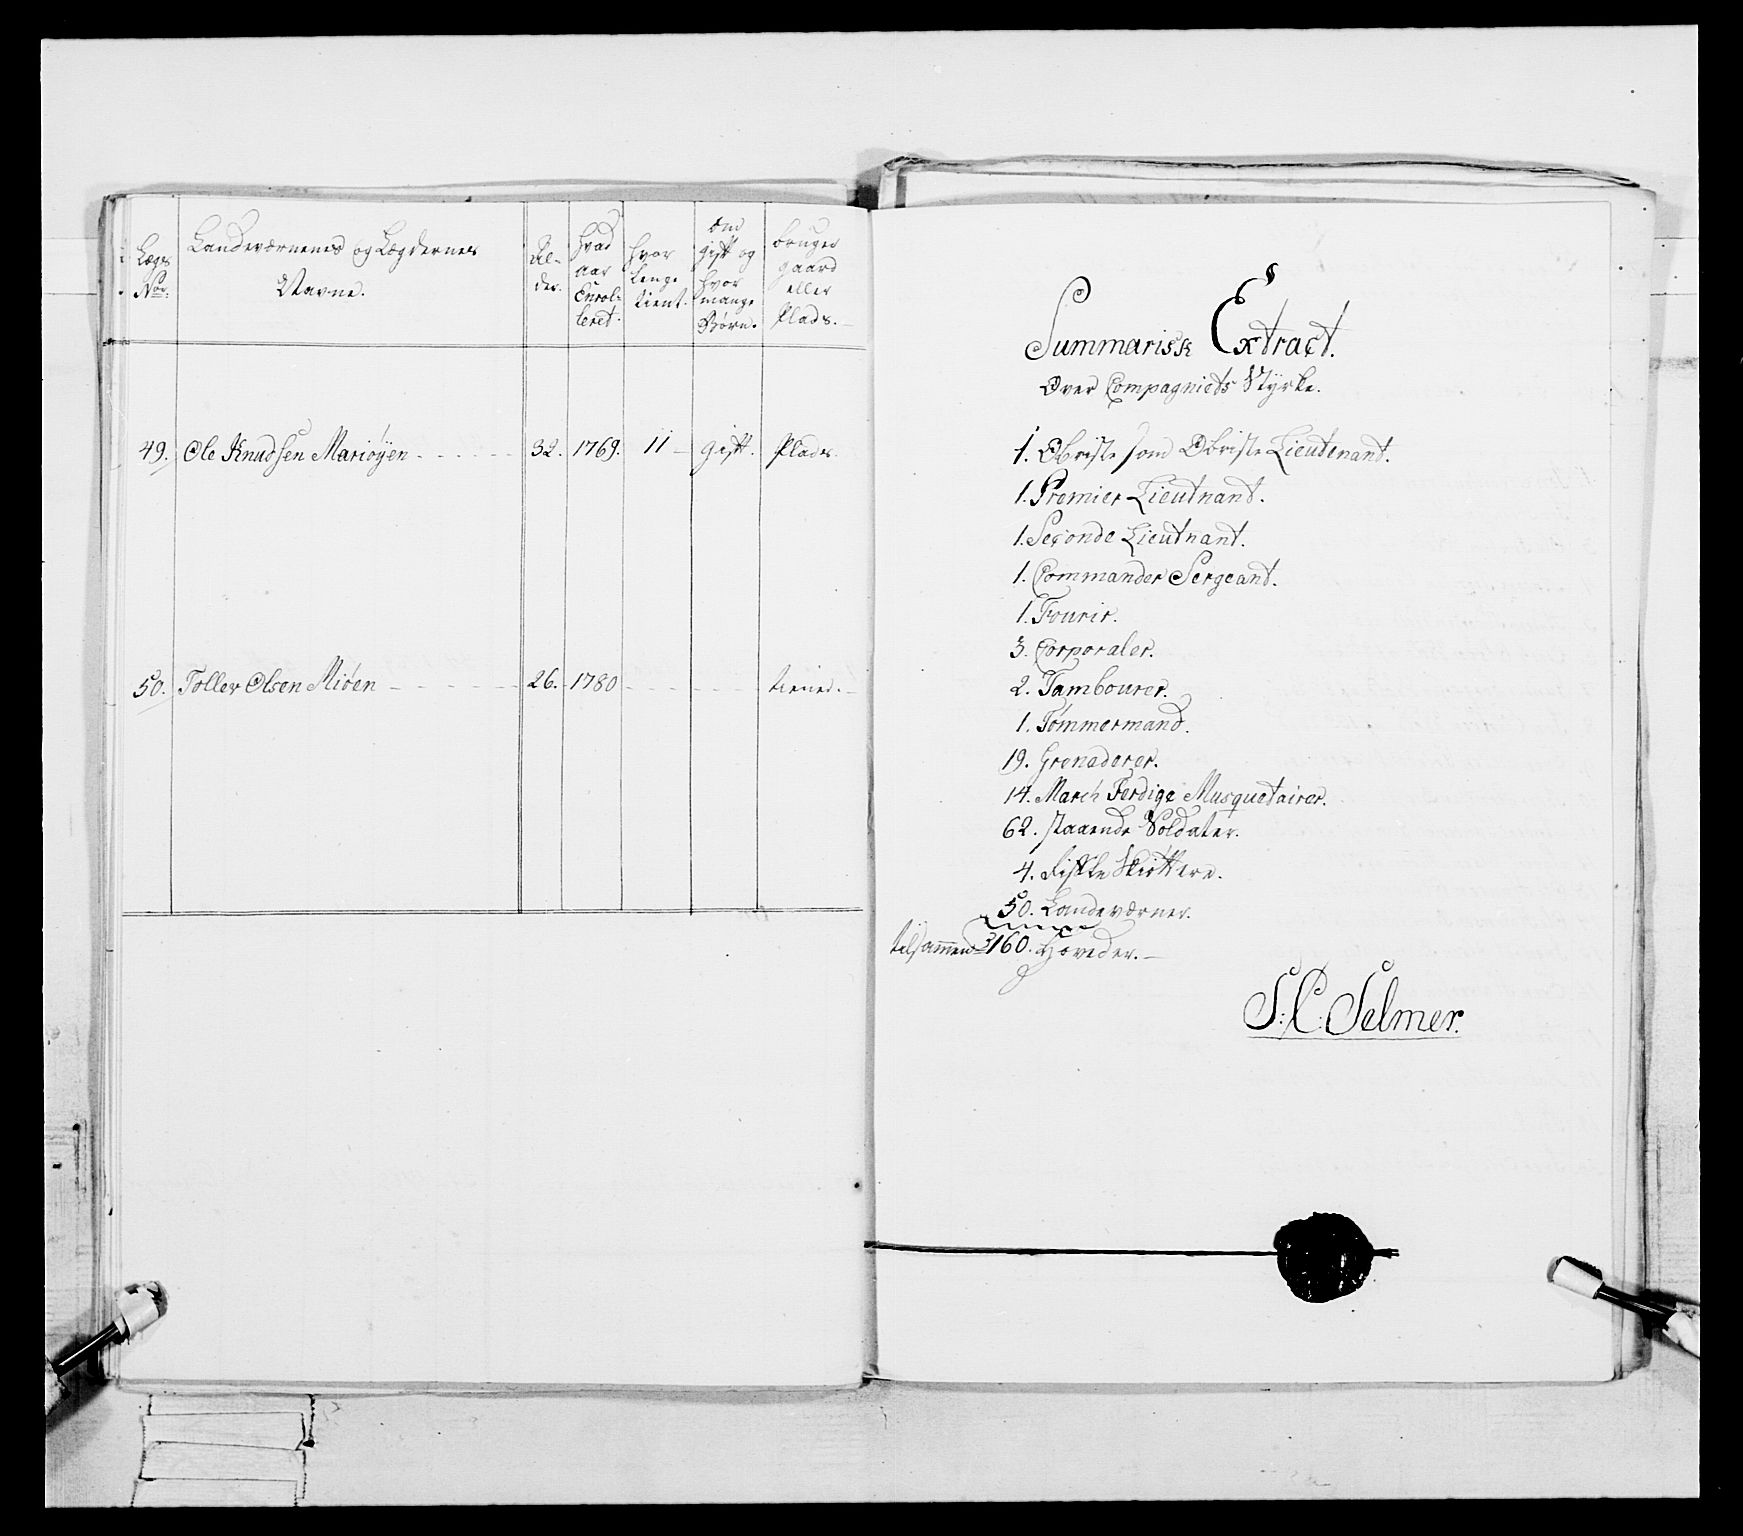 Lægs Nor:
Landeværnenes og Lægdernes Navne.
Al- der.
hvad aar Enrol- leret.
hvor lenge tient.
om gift og hvor mange Børn.
bruger gaard eller Plads.
49. Ole Knudsen Mariøyen 32. 1769. 11 gift. Plads
50. Toller Olsen Miøen 26. 1780 tiener.
Summarisk Extract.
Over Compagniets Styrke.
1. Obriste som Obriste Lieutenant.
1. Premier Lieutnant.
1. Seconde Lieutnant.
1. Commander Sergeant.
1. Fourir.
3. Corporaler.
2. Tambourer.
1. Tømmermand.
19. Grenaderer.
14. March Ferdige Musquetairer.
62. staaende Soldater.
4. friske Skiøttere.
50. Landeværner.
tilsammen 160. Hoveder.
S: C: Selmer.